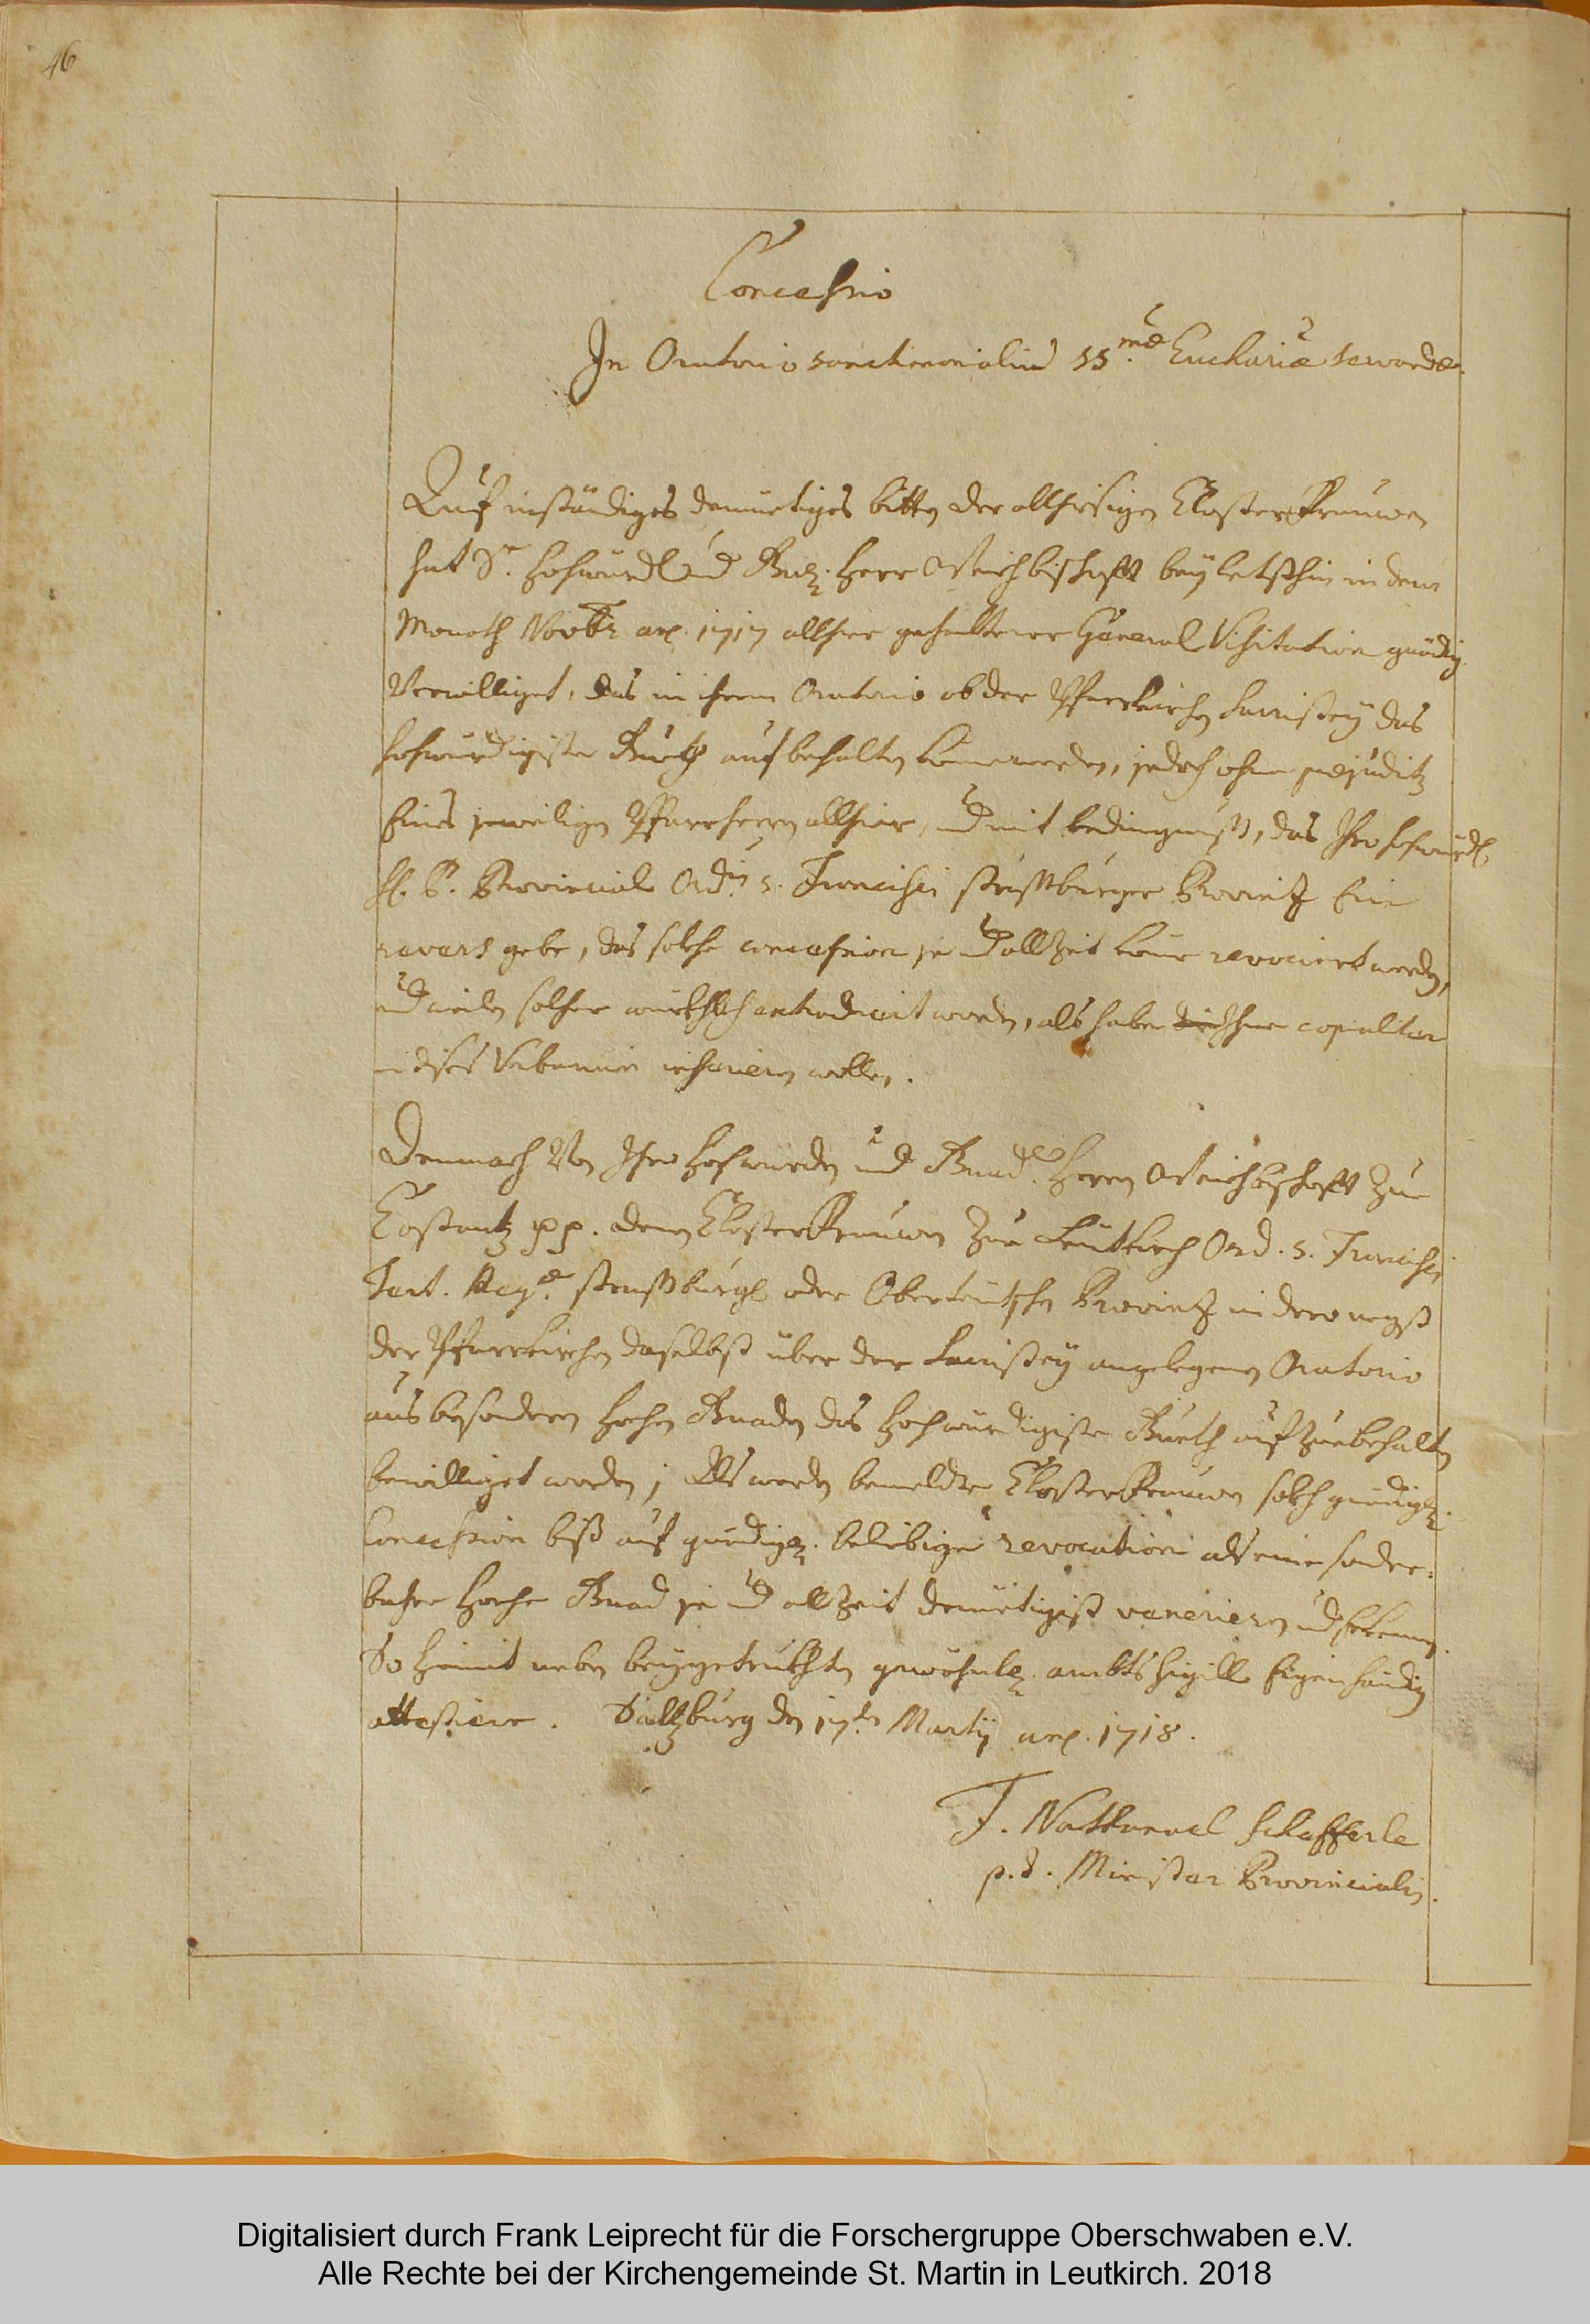 46
Concessio
In Oratorio sanctimonialium SS.mæ Euchariæ servandæ.
Auf inständiges demüetiges bitten der allhiesigen ClosterFrauwen
hat Sr. Hochwürdl. und Gnd. Herr Weichbischoff bey letsthin in dem
Monath Novbr. ao. 1717 allhier gehaltener General Visitation gnädig.
Verwilliget, das in ihrem Oratorio ob der Pfarrkirchen Sacristey das
hochwürdigiste Gueth aufbehalten könne werden, jedoch ohne præjuditz
Eines jeweiligen Pfarrherrn allhier, und mit bedingnuß, das Ihro hochwürdl.
H. P. Provincial Ordis S. Francisci straßburger Provintz Ein
revers gebe, das solche concession je und allzeit könne revociert werden,
und weilen solcher würkhlich extradiert worden, als haben Ihne copialiter
in dises Urbarium inserieren wollen.
Demnach Von Ihro Hochwürden und Gnad. Herren Weichbischoff zue
Costantz pp. denen ClosterFrauwen zue Leutkirch Ord. S. Francisci
Tert. Reg.æ straßburgl. oder Oberteutschen Provintz in dero negst
der Pfarrkirchen daselbst über der Sacristey angelegenen Oratorio
aus besonderen hochen Gnaden das hochwürdigiste Gueth auf zue behalten
bewilliget worden; Als werden bemeldte ClosterFrauwen solch gnädige
Concession biß auf gnädige beliebige revocation als eine sonder-
bahre hoche Gnad je und allzeit demüetigist venerieren und erkennen.
So hiemit neben beygetrukhten gewöhnl. ambts sigill Eigenhändig
attestiere. Saltzburg den 17ten Martij ao. 1718.
F. Nathanael Schafferle
p.t. Minister Provincialis.
Digitalisiert durch Frank Leiprecht für die Forschergruppe Oberschwaben e.V.
Alle Rechte bei der Kirchengemeinde St. Martin in Leutkirch. 2018